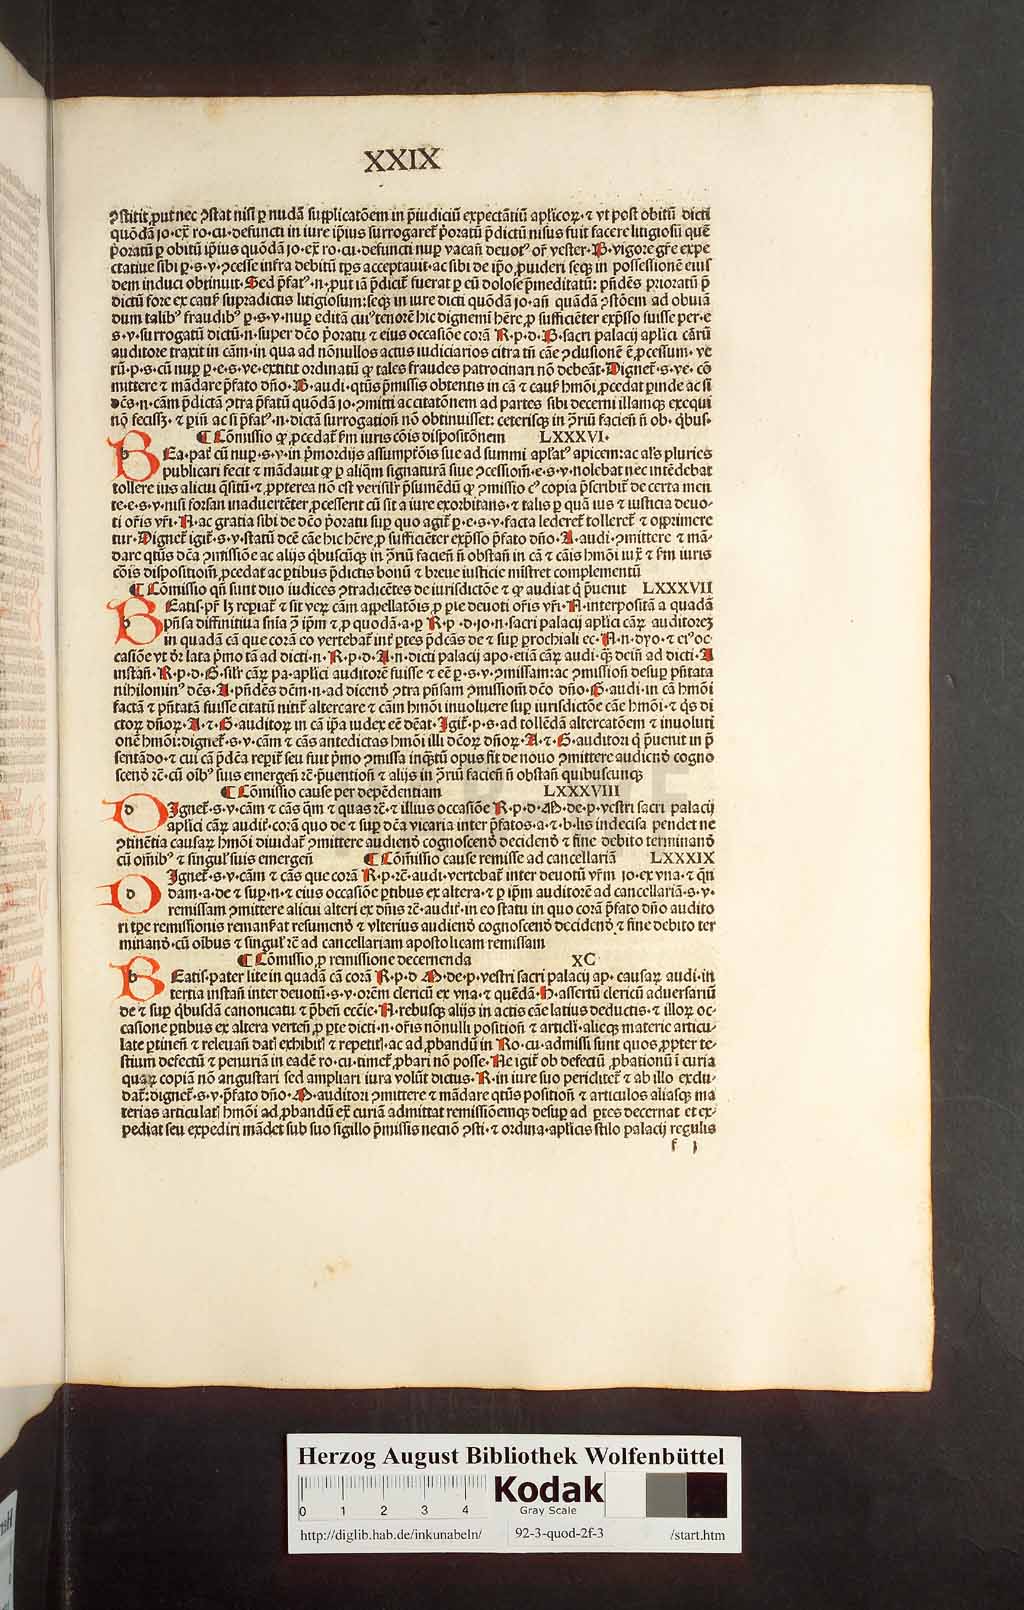 XXIX
ꝯſtitit ꝓut nec ꝯſtat niſi ꝑ nudā ſupplicatōem in p̄iudiciū expectātiū aplicoꝝ·⁊ vt poſt obitū dicti
quōdā jo·ex̄ ro·cu·defuncti in iure ip̄ius ſurrogaret̄ p̄oratū p̄dictū niſus fuit facere litigioſū quē
p̄oratū ꝑ obitū ip̄ius quōdā jo·ex̄ ro·cu·defuncti nuꝑ vacan̄ deuotꝰ or̄ veſter·B·vigore gr̄e expe
ctatiue ſibi ꝑ·s·v·ꝯceſſe infra debitū tp̄s acceptauit·ac ſibi de ip̄o ꝓuideri ſeqꝫ in poſſeſſionē eiuſ
dem induci obtinuit·Sed p̄fatꝰ·n·put iā p̄dicit̄ fuerat ꝑ eū doloſe p̄meditatū: pn̄dēs prioratū p̄
dictū fore ex cauſ̄ ſupradictis litigioſum:ſeqꝫ in iure dicti quōdā jo·añ quādā ꝯſtōem ad obuiā
dum talibꝰ fraudibꝰ ꝑ·s·v·nuꝑ editā cuiꝰ tenorē hic dignemi hēre ꝓ ſufficiēter exp̄ſſo ſuiſſe per·e
s·v·ſurrogatū dictū·n·ſuper dc̄o p̄oratu ⁊ eius occaſiōe corā R·p·d·B·ſacri palacij aplici cārū
auditore traxit in cām·in qua ad nōnullos actus iudiciarios citra tn̄ cāe ꝯcluſionē ē ꝓceſſum·ve
rū·p·s·cū nuꝑ ꝑ·e·s·ve·extitit ordinatū ꝙ tales fraudes patrocinari nō debeāt·Dignet̄·s·ve·cō
mittere ⁊ mādare p̄fato dño·B·audi·qtūs p̄miſſis obtentis in cā ⁊ cauſ̄ hmōi ꝓcedat ꝑinde ac ſi
dc̄s·n·cām p̄dictā ꝯtra p̄fatū quōdā jo·ꝯmitti ac citatōnem ad partes ſibi decerni illamqꝫ exequi
nō feciſſꝫ·⁊ ꝑin̄ ac ſi p̄fatꝰ·n·dictā ſurrogation̄ nō obtinuiſſet: ceteriſqꝫ in ꝯriū facien̄ n̄ ob·qbuſ·
¶ Cōmiſſio ꝙ ꝓcedat̄ ſm̄ iuris cōis diſpoſitōnem LXXXVI·
BEa·pat̄ cū nuꝑ·s·v·in p̄mordijs aſſumpt̄ōis ſue ad ſummi apl̄atꝰ apicem:ac al̄s pluries
publicari fecit ⁊ mādauit ꝙ ꝑ aliq̄m ſignaturā ſiue ꝯceſſiom̄·e·s·v·nolebat nec intēdebat
tollere ius alicui q̄ſitū·⁊ ꝓpterea nō eſt veriſil̄r p̄ſumēdū ꝙ ꝯmiſſio cꝰ copia p̄ſcribit̄ de certa men
te·e·s·v·niſi forſan inaduertēter ꝓceſſerit cū ſit a iure exorbitans·⁊ talis ꝑ quā ius ⁊ iuſticia deuo-
ti or̄is vr̄i·N·ac gratia ſibi de dc̄o p̄oratu ſuꝑ quo agit̄ ꝑ·e·s·v·facta lederet̄ tolleret̄ ⁊ opprimere
tur·Dignet̄ igit̄·s·v·ſtatū dc̄ē cāe hic hēre ꝓ ſufficiēter exp̄ſſo p̄fato dño·A·audi·ꝯmittere ⁊ mā-
dare qtūs dc̄a ꝯmiſſiōe ac alijs qbuſcūqꝫ in ꝯriū facien̄ n̄ obſtan̄ in cā ⁊ cāis hmōi iux̄ ⁊ ſm̄ iuris
cōis diſpoſitiom̄ ꝓcedat ac ꝑtibus p̄dictis bonū ⁊ breue iuſticie miſtret complementū
¶ Cōmiſſio qn̄ ſunt duo iudices ꝯtradicētes de iurisdictōe ⁊ ꝙ audiat q̄ p̄uenit LXXXVII
BEatiſ·pr̄ lꝫ repiat̄ ⁊ ſit veꝝ cām appellatōis ꝓ ꝑte deuoti or̄is vr̄i·N·interpoſitā a quadā
pn̄ſa diffinitiua ſnīa p̄ ip̄m ⁊ ꝓ quodā·a·p R·p·d·jo·n·ſacri palacij aplici cāꝝ auditoreꝫ
in quadā cā que corā eo vertebat̄ int̄ ꝑtes p̄dcās de ⁊ ſuꝑ ꝑrochiali ec·N·n·dyo·⁊ eiꝰ oc-
caſiōe vt or̄ lata p̄mo tā ad dicti·n·R·p·d·A·n·dicti palacij apo·etiā cāꝝ audi·q̄ꝫ dein̄ ad dicti·A
inſtan̄·R·p·d·G·ſil̄r cāꝝ pa·aplici auditorē fuiſſe ⁊ eē ꝑ·s·v·ꝯmiſſam:ac ꝯmiſſion̄ deſuꝑ pn̄tata
nihilominꝰ dc̄s·A·pn̄dēs dc̄m·n·ad dicenō ꝯtra pn̄ſam ꝯmiſſiom̄ dc̄o dño·G·audi·in cā hmōi
factā ⁊ pn̄tatā fuiſſe citatū nitit̄ altercare ⁊ cām hmōi inuoluere ſuꝑ iurisdictōe cāe hmōi·⁊ q̄s di
ctoꝝ dñoꝝ·A·⁊·G·auditoꝝ in cā ip̄a iudex eē dēat·Igit̄·p·s·ad tollēdā altercatōem ⁊ inuoluti
onē hmōi:dignet̄·s·v·cām ⁊ cās antedictas hmōi illi dc̄oꝝ dñoꝝ·A·⁊·G·auditori q̄ p̄uenit in p̄
ſentādo·⁊ cui cā p̄dc̄a repit̄ ſeu fuit p̄mo ꝯmiſſa inqꝫtū opus fit̄ de nouo ꝯmittere audienō cogno
ſcenō rē·cū oibꝰ ſuis emergen̄ rē·p̄uention̄ ⁊ alijs in ꝯriū facien̄ n̄ obſtan̄ quibuſcunqꝫ
¶ Cōmiſſio cauſe per depēdentiam LXXXVIII
DIgnet̄·s·v·cām ⁊ cās q̄m ⁊ quas rē·⁊ illius occaſiōe R·p·d·M·de·p·veſtri ſacri palacij
aplici cāꝝ audit̄·corā quo de ⁊ ſuꝑ dc̄a vicaria inter p̄fatos·a·⁊·b·lis indeciſa pendet ne
ꝯtinētia cauſaꝝ hmōi diuidat̄ ꝯmittere audienō cognoſcenō decidenō ⁊ fine debito terminanō
cū om̄ibꝰ ⁊ ſingul̄ ſuis emergen̄ ¶ Cōm̄iſſio cauſe remiſſe ad cancellariā LXXXIX
DIgnet̄·s·v·cām ⁊ cās que corā R·p·rē·audi·vertebat̄ inter deuotū vr̄m jo·ex vna·⁊ q̄n
dam·a·de ⁊ ſuꝑ·n·⁊ eius occaſiōe ꝑtibus ex altera·⁊ ꝑ ip̄m auditorē ad cancellariā·s·v·
remiſſam ꝯmittere alicui alteri ex dn̄is rē·audit̄·in eo ſtatu in quo corā p̄fato dño audito
ri tꝑe remiſſionis remanſ̄at reſumenō ⁊ vlterius audienō cognoſcenō decidenō ⁊ fine debito ter
minanō·cū oībus ⁊ ſingul̄ rē ad cancellariam apoſtolicam remiſſam
¶ Cōmiſſio ꝓ remiſſione decernenda XC
BEatiſ·pater lite in quadā cā corā R·p·d M·de·p·veſtri ſacri palacij ap·cauſaꝝ audi·in
tertia inſtan̄ inter deuotū·s·v·orēm clericū ex vna·⁊ quēdā·H·aſſertū clericū aduerſariū
de ⁊ ſuꝑ qbuſdā canonicatu ⁊ p̄ben̄ ecc̄ie·N·rebuſqꝫ alijs in actis cāe latius deductis·⁊ illoꝝ oc-
caſione ꝑtibus ex altera verten̄ ꝓ ꝑte dicti·n·or̄is nōnulli poſition̄ ⁊ articl̄i·alieqꝫ materie articu-
late ꝑtinen̄ ⁊ releuan̄ dati exhibiti ⁊ repetiti·ac ad ꝓbandū in Ro·cu·admiſſi ſunt quos ꝓpter te-
ſtium defectū ⁊ penuriā in eadē ro·cu·timet̄ ꝓbari nō poſſe·Ac igit̄ ob defectū ꝓbationū ī curia
quaꝝ copiā nō anguſtari ſed ampliari iura volūt dictus·R·in iure ſuo periditet̄ ⁊ ab illo exclu-
dat̄:dignet̄·s·v·p̄fato dño·M·auditori ꝯmittere ⁊ mādare qtūs poſition̄ ⁊ articulos aliaſqꝫ ma
terias articulati hmōi ad ꝓbandū ex̄ curiā admittat remiſſiōemqꝫ deſuꝑ ad ꝑtes decernat et ex-
pediat ſeu expediri mādet ſub ſuo ſigillo p̄miſſis necnō ꝯſti·⁊ ordina·aplicis ſtilo palacij regulis
f j
Herzog August Bibliothek Wolfenbüttel
0 1 2 3 4
Kodak
Gray Scale
http://diglib.hab.de/inkunabeln/ 92-3-quod-2f-3 /start.htm